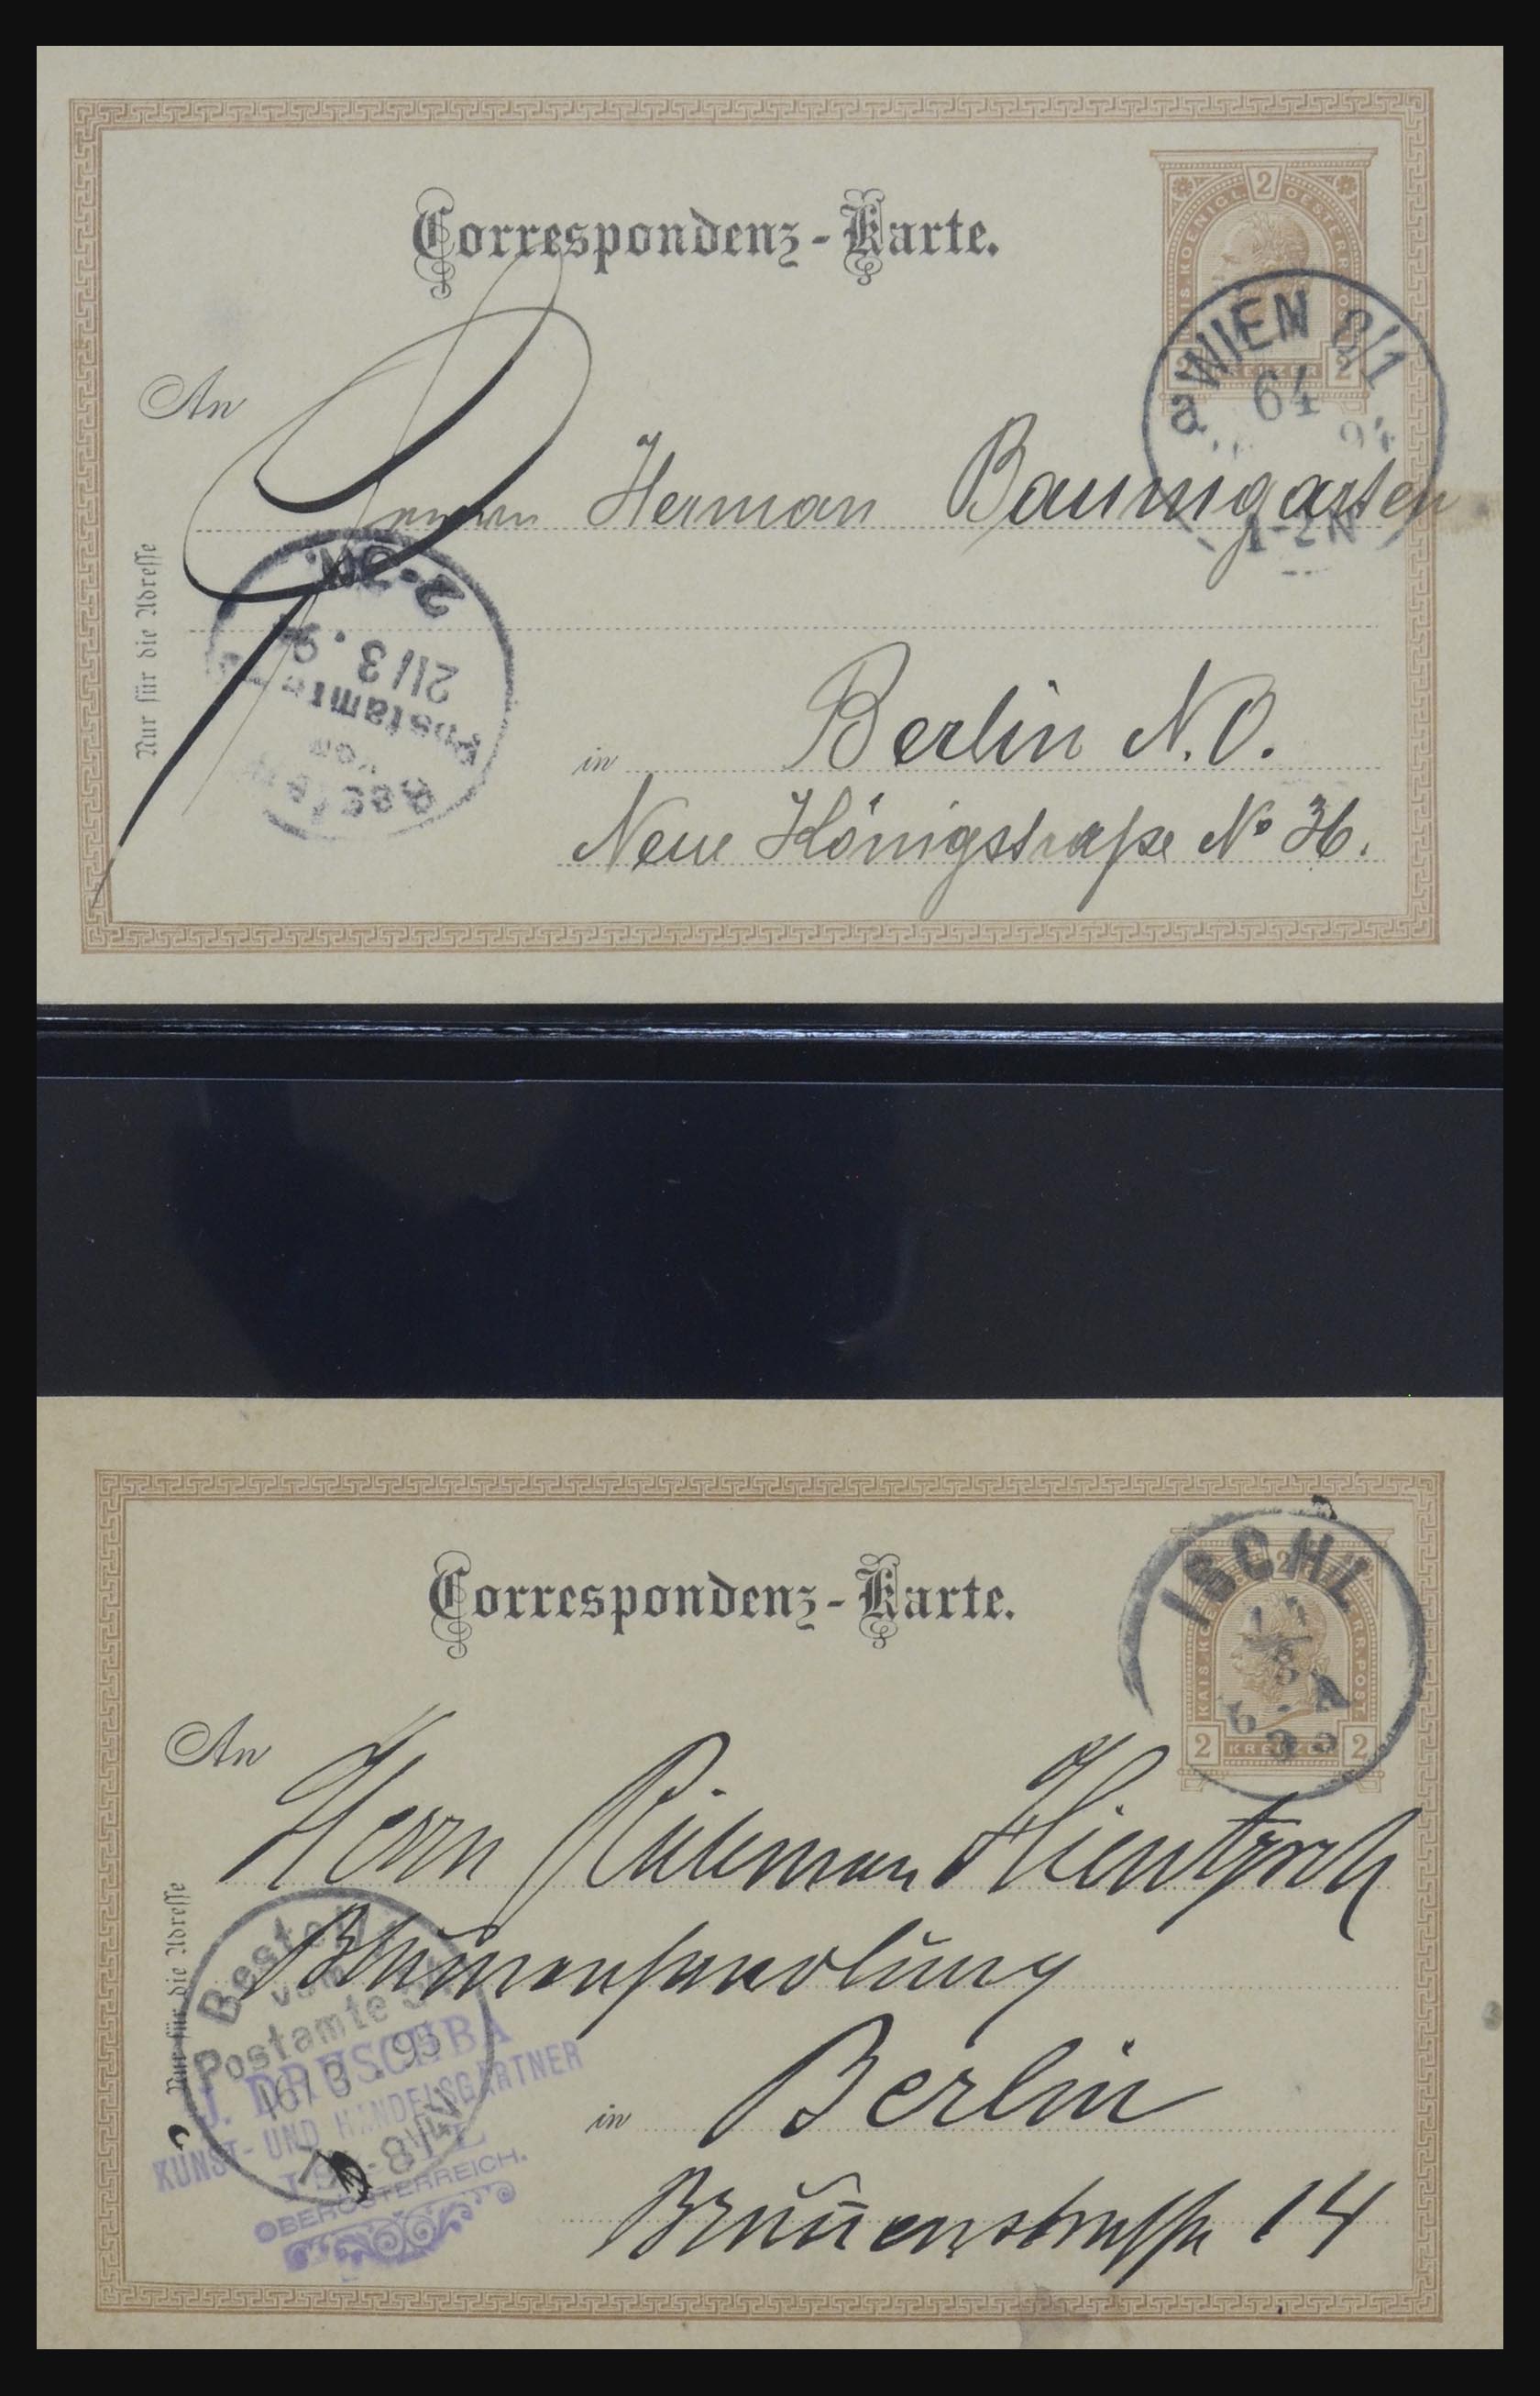 Correspondenz-Karte.
2
KAIS. KOENIGL. OESTERR. POST
2 KREUZER 2
WIEN 8/1
a
64
94
1-2N
An
Herrn Herman Baumgarten
Nur für die Adresse
2-3N.
21/3.9
Postamte
vom
Bestellt
in Berlin N.O.
Neue Königstraße No 36.
Correspondenz-Karte.
2
2 KREUZER 2
ISCHL
8
An
Herrn
Blumenhandlung
Nur für die Adresse
Bestellt
vom
Postamte
16/3 95
7-8
J. DRUSCHBA
KUNST- UND HANDELSGÄRTNER
ISCHL
OBERÖSTERREICH.
in Berlin
Brunnenstrasse 14